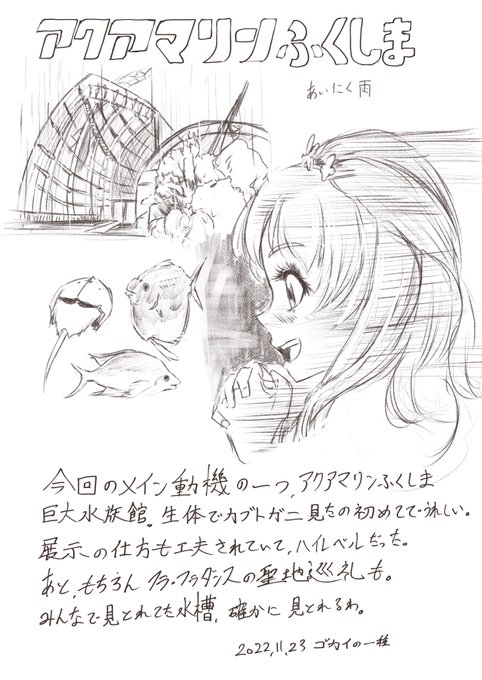 アクアマリンふくしま
あいにく雨
今回のメイン動機の一つ、アクアマリンふくしま
巨大水族館。生体でカブトガニ見たの初めてでうれしい。
展示の仕方も工夫されていて、ハイレベルだった。
あと、もちろんフラ・フラダンスの聖地巡礼も。
みんなで見とれてた水槽、確かに見とれるわ。
2022,11,23 ゴカイの一種